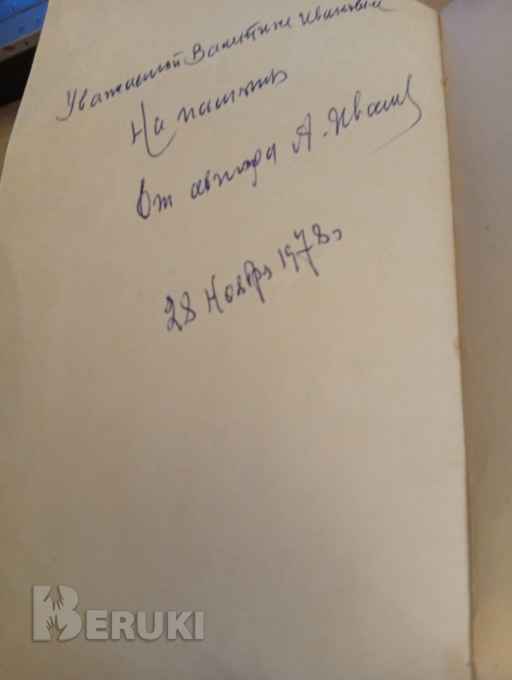 Уважаемой Валентине Ивановне
На память
От автора А. Иванов
28 Ноябр 1978г
BERUKI